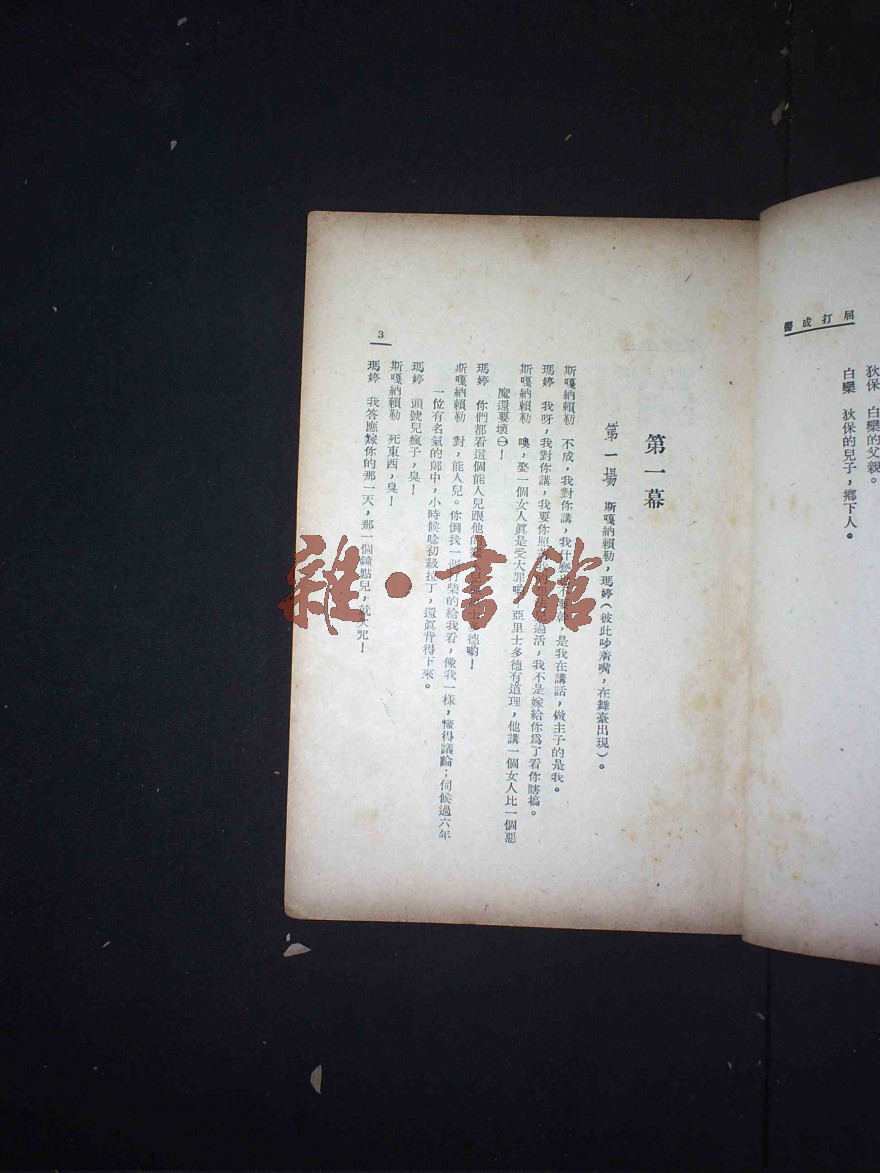 屈打成醫
狄保 白欒的父親。
白欒 狄保的兒子，鄉下人。
第一幕
第一場 斯嘎納賴勒，瑪婷（彼此吵着嘴，在舞臺出現）。
斯嘎納賴勒 不成，我對你講，我什麼也不要幹，是我在講話，做主子的是我。
瑪婷 我呀，我對你講，我要你照着我過活，我不是嫁給你爲了看你瞎搞。
斯嘎納賴勒 噢，娶一個女人眞是受大罪喲！亞里士多德有道理，他講一個女人比一個惡
魔還要壞㊀！
瑪婷 你們都看這個能人兒跟他的士多德喲！
斯嘎納賴勒 對，能人兒。你倒找一個打柴的給我看，像我一樣，懂得議論；伺候過六年
一位有名氣的郎中，小時候唸初級拉丁，還眞背得下來。
瑪婷 頭號兒瘋子，臭！
斯嘎納賴勒 死東西，臭！
瑪婷 我答應嫁你的那一天，那一個鐘點兒，就天咒！
3
雜·書館